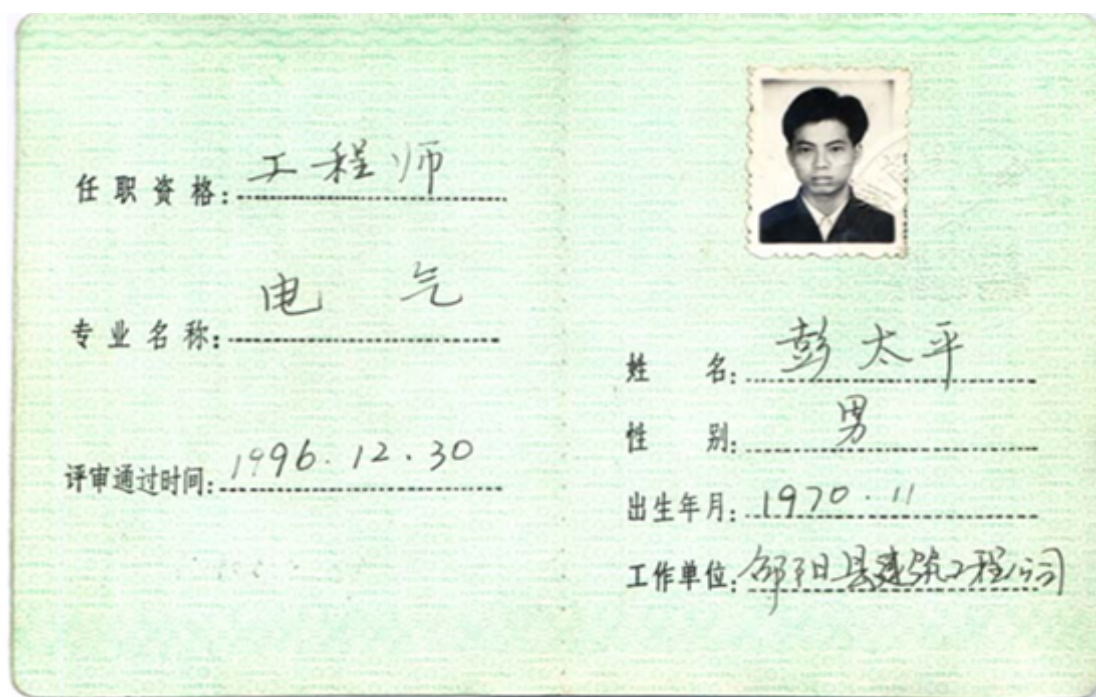 任职资格：工程师
专业名称：电气
评审通过时间：1996.12.30
姓名：彭太平
性别：男
出生年月：1970.11
工作单位：邵阳县建筑工程公司